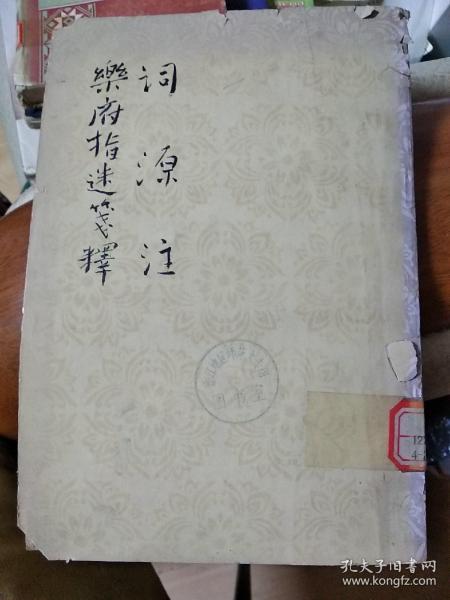 詞源注
樂府指迷箋釋
图书室
12
4-
孔夫子旧书网
www.kongfz.com